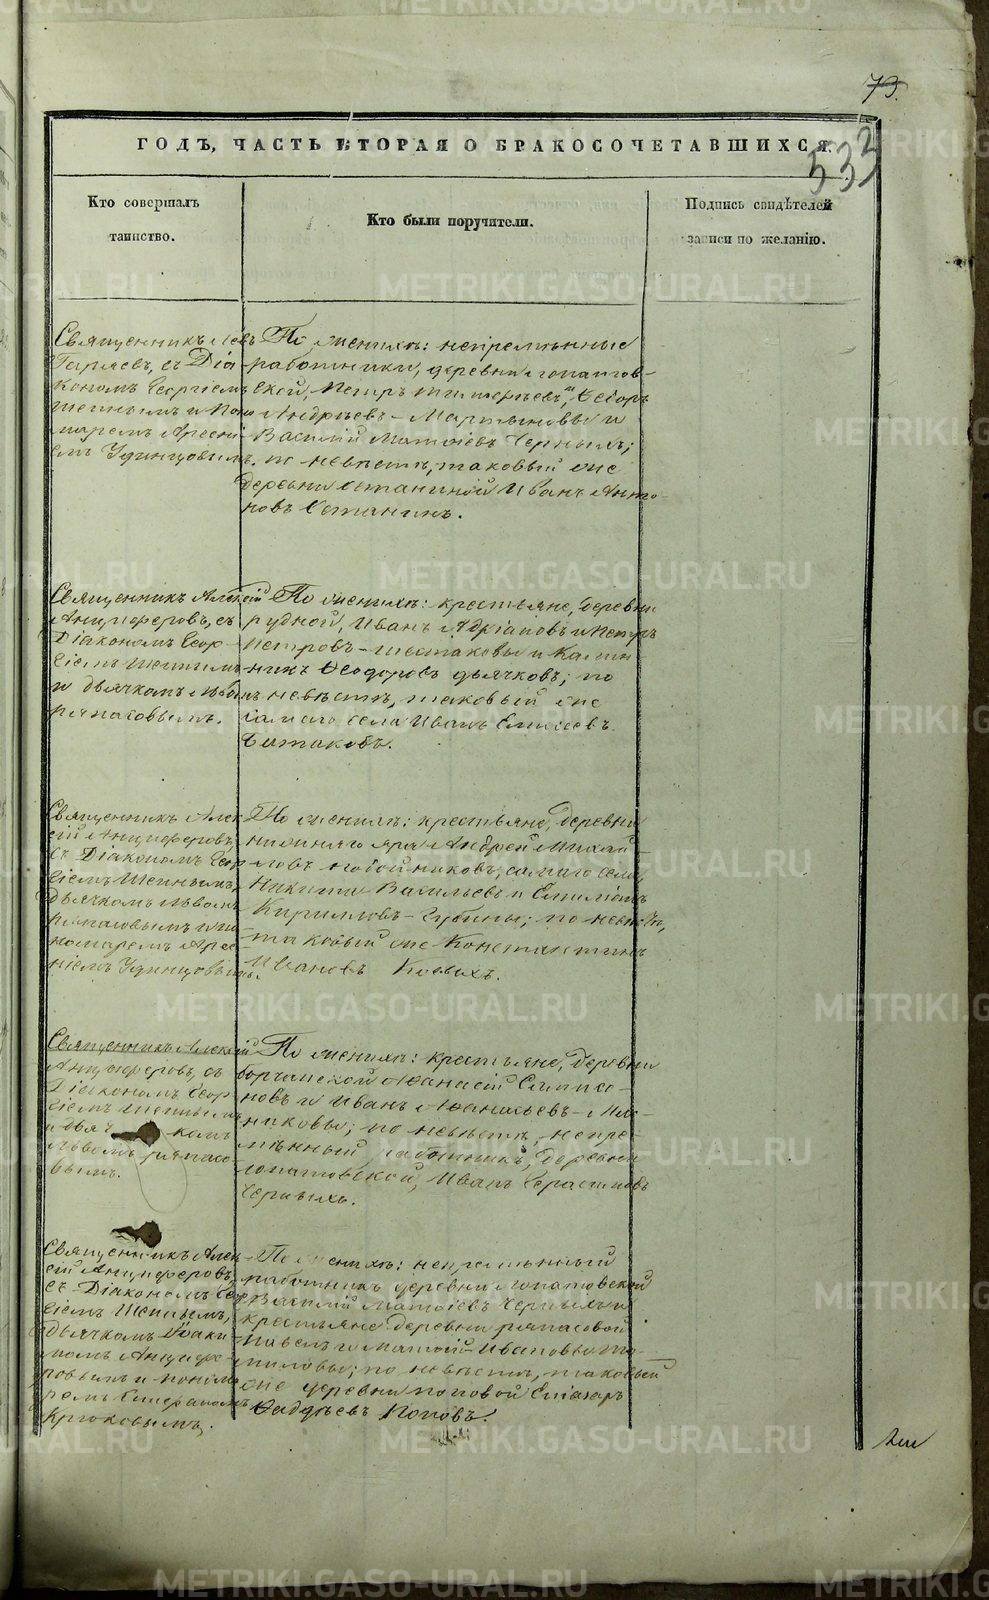 73.
533
ГОДЪ, ЧАСТЬ ВТОРАЯ О БРАКОСОЧЕТАВШИХСЯ.
Кто совершалъ
таинство.
Кто были поручители.
Подпись свидѣтелей
записи по желанію.
Священникъ Левъ
Гаряевъ, съ Діа-
кономъ Георгіемъ
и Поно-
маремъ Арсені-
емъ Удинцовымъ.
По женихѣ: непремѣнные
работники, деревни Лопатов-
ской, Петръ Ѳедоръ
Андреевъ - Мартыновы и
Василій Матѳіевъ Черныхъ;
по невѣстѣ, таковый же
деревни Останиной Иванъ Анто-
новъ Останинъ.
Священникъ Алексій
Анциферовъ, съ
Діакономъ Геор-
гіемъ
и дьячкомъ Львомъ
Ряпасовымъ.
По женихѣ: крестьяне, деревни
Рудной, Иванъ Адріановъ и Петръ
Петровъ - Шестаковы и Калин-
никъ Ѳеодоровъ Дьячковъ; по
невѣстѣ, таковый же
самаго села Иванъ Елисеевъ
Священникъ Алек-
сій Анциферовъ,
съ Діакономъ Геор-
гіемъ
Дьячкомъ Львомъ
Ряпасовымъ и по-
номаремъ Арсе-
ніемъ Удинцовымъ.
По женихѣ: крестьяне, деревни
яра Андрей Михай-
ловъ самаго села
Никита Васильевъ и
Кирилловъ - Губины; по невѣстѣ,
таковый же Константинъ
Ивановъ
Священникъ Алексій
Анциферовъ, съ
Діакономъ Геор-
гіемъ
и Дьячкомъ
Львомъ Ряпасо-
вымъ.
По женихѣ: крестьяне, деревни
Аѳанасій
новъ и Иванъ Аѳанасьевъ -
никовы; по невѣстѣ, непре-
мѣнный работникъ, деревни
Лопатовской, Иванъ Герасимовъ
Черныхъ.
Священникъ Алек-
сій Анциферовъ,
съ Діакономъ Геор-
гіемъ
дьячкомъ Іоаки-
момъ Анцифе-
ровымъ и понома-
ремъ
Крюковымъ.
По женихѣ: непремѣнный
работникъ деревни Лопатовской
Василій Матѳіевъ Черныхъ и
крестьяне деревни Ряпасовой
Павелъ и Матѳій Ивановы
по невѣстѣ, таковый
же деревни Поповой
Ѳаддѣевъ Поповъ.
METRIKI.GASO-URAL.RU